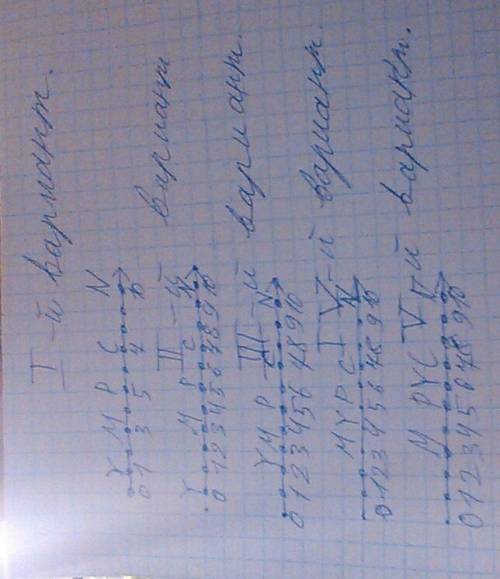 I -й вариант.
Y M P C N
0 1 3 5 7 10
II -й вариант
Y M P C N
0 1 2 3 4 5 6 7 8 9 10
III -й вариант.
Y M P C N
0 1 2 3 4 5 6 7 8 9 10
IV -й вариант
M Y P C N
0 1 2 3 4 5 6 7 8 9 10
V -й вариант.
M P Y C N
0 1 2 3 4 5 6 7 8 9 10